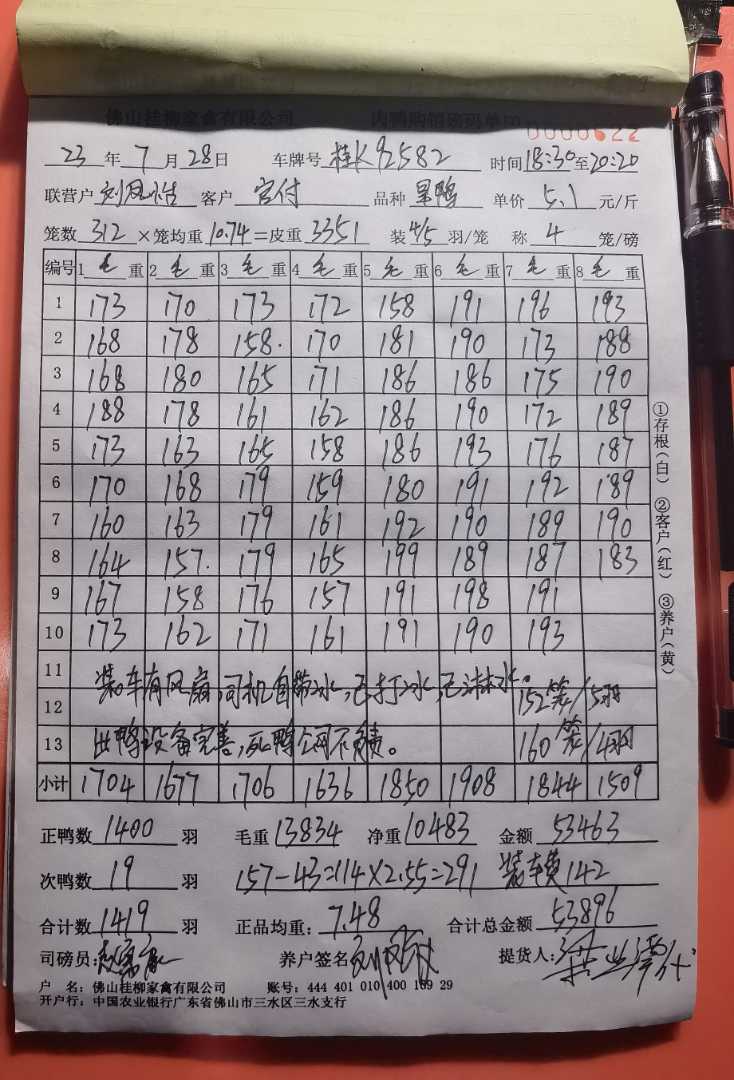 佛山桂柳家禽有限公司 内鸭购销磅码单 0000622
23年7月28日 车牌号 桂K92582 时间18:30至20:20
联营户 客户 官付 品种 单价 5.1 元/斤
笼数 312 ×笼均重 10.74 =皮重 3351 装 4/5 羽/笼 称 4 笼/磅
编号 1 毛 重 2 毛 重 3 毛 重 4 毛 重 5 毛 重 6 毛 重 7 毛 重 8 毛 重
1 173 170 173 172 158 191 196 193
2 168 178 158. 170 181 190 173 188
3 168 180 165 171 186 186 175 190
4 188 178 161 162 186 190 172 189
5 173 163 165 158 186 193 176 187
6 170 168 179 159 180 191 192 189
7 160 163 179 161 192 190 189 190
8 164 157. 179 165 199 189 187 183
9 167 158 176 157 191 198 191
10 173 162 171 161 191 190 193
11 装车有风扇,司机自带水,已打水,已淋水。
12 152笼/5羽
13 出鸭设备完善,死鸭公司不负责。 160笼/4羽
小计 1704 1677 1706 1636 1850 1908 1844 1509
正鸭数 1400 羽 毛重 13834 净重 10483 金额 53463
次鸭数 19 羽 157-43=114×2.55=291 装车费142
合计数 1419 羽 正品均重: 7.48 合计总金额 53896
司磅员: 养户签名 提货人:
户 名: 佛山桂柳家禽有限公司 账号: 444 401 010 400 169 29
开户行: 中国农业银行广东省佛山市三水区三水支行
①存根(白) ②客户(红) ③养户(黄)